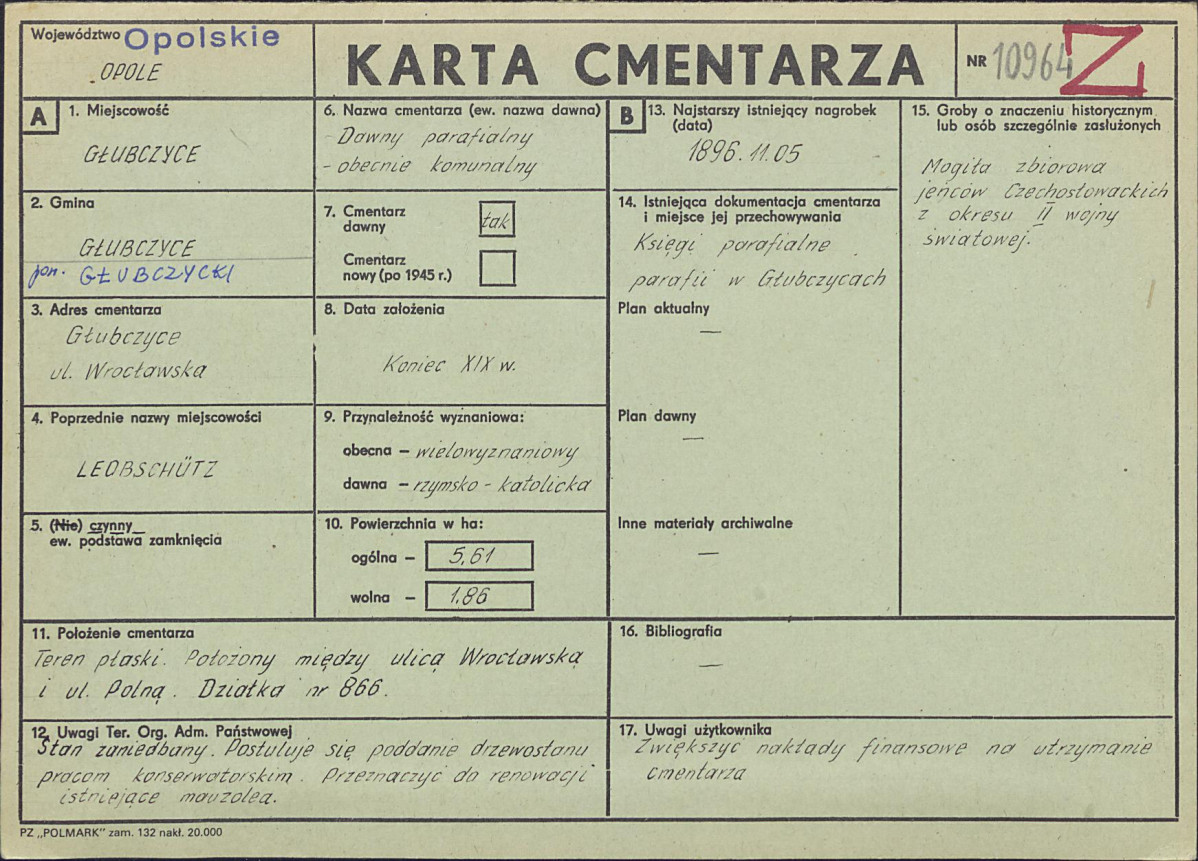 Województwo Opolskie
OPOLE
KARTA CMENTARZA
NR 10964 Z
A
1. Miejscowość
GŁUBCZYCE
2. Gmina
GŁUBCZYCE
pow. GŁUBCZYCKI
3. Adres cmentarza
Głubczyce
ul. Wrocławska
4. Poprzednie nazwy miejscowości
LEOBSCHÜTZ
5. (Nie) czynny
ew. podstawa zamknięcia
6. Nazwa cmentarza (ew. nazwa dawna)
- Dawny parafialny
- obecnie komunalny
7. Cmentarz
dawny
tak
Cmentarz
nowy (po 1945 r.)
8. Data założenia
Koniec XIX w.
9. Przynależność wyznaniowa:
obecna – wielowyznaniowy
dawna – rzymsko - katolicka
10. Powierzchnia w ha:
ogólna – 5,61
wolna – 1,86
B
13. Najstarszy istniejący nagrobek
(data)
1896.11.05
14. Istniejąca dokumentacja cmentarza
i miejsce jej przechowywania
Księgi parafialne
parafii w Głubczycach
Plan aktualny
—
Plan dawny
—
Inne materiały archiwalne
—
15. Groby o znaczeniu historycznym
lub osób szczególnie zasłużonych
Mogiła zbiorowa
jeńców Czechosłowackich
z okresu II wojny
światowej.
11. Położenie cmentarza
Teren płaski. Położony między ulicą Wrocławską
i ul. Polną. Działka nr 866.
16. Bibliografia
—
12. Uwagi Ter. Org. Adm. Państwowej
Stan zaniedbany. Postuluje się poddanie drzewostanu
pracom konserwatorskim. Przeznaczyć do renowacji
istniejące mauzolea.
17. Uwagi użytkownika
Zwiększyć nakłady finansowe na utrzymanie
cmentarza
PZ „POLMARK” zam. 132 nakł. 20.000